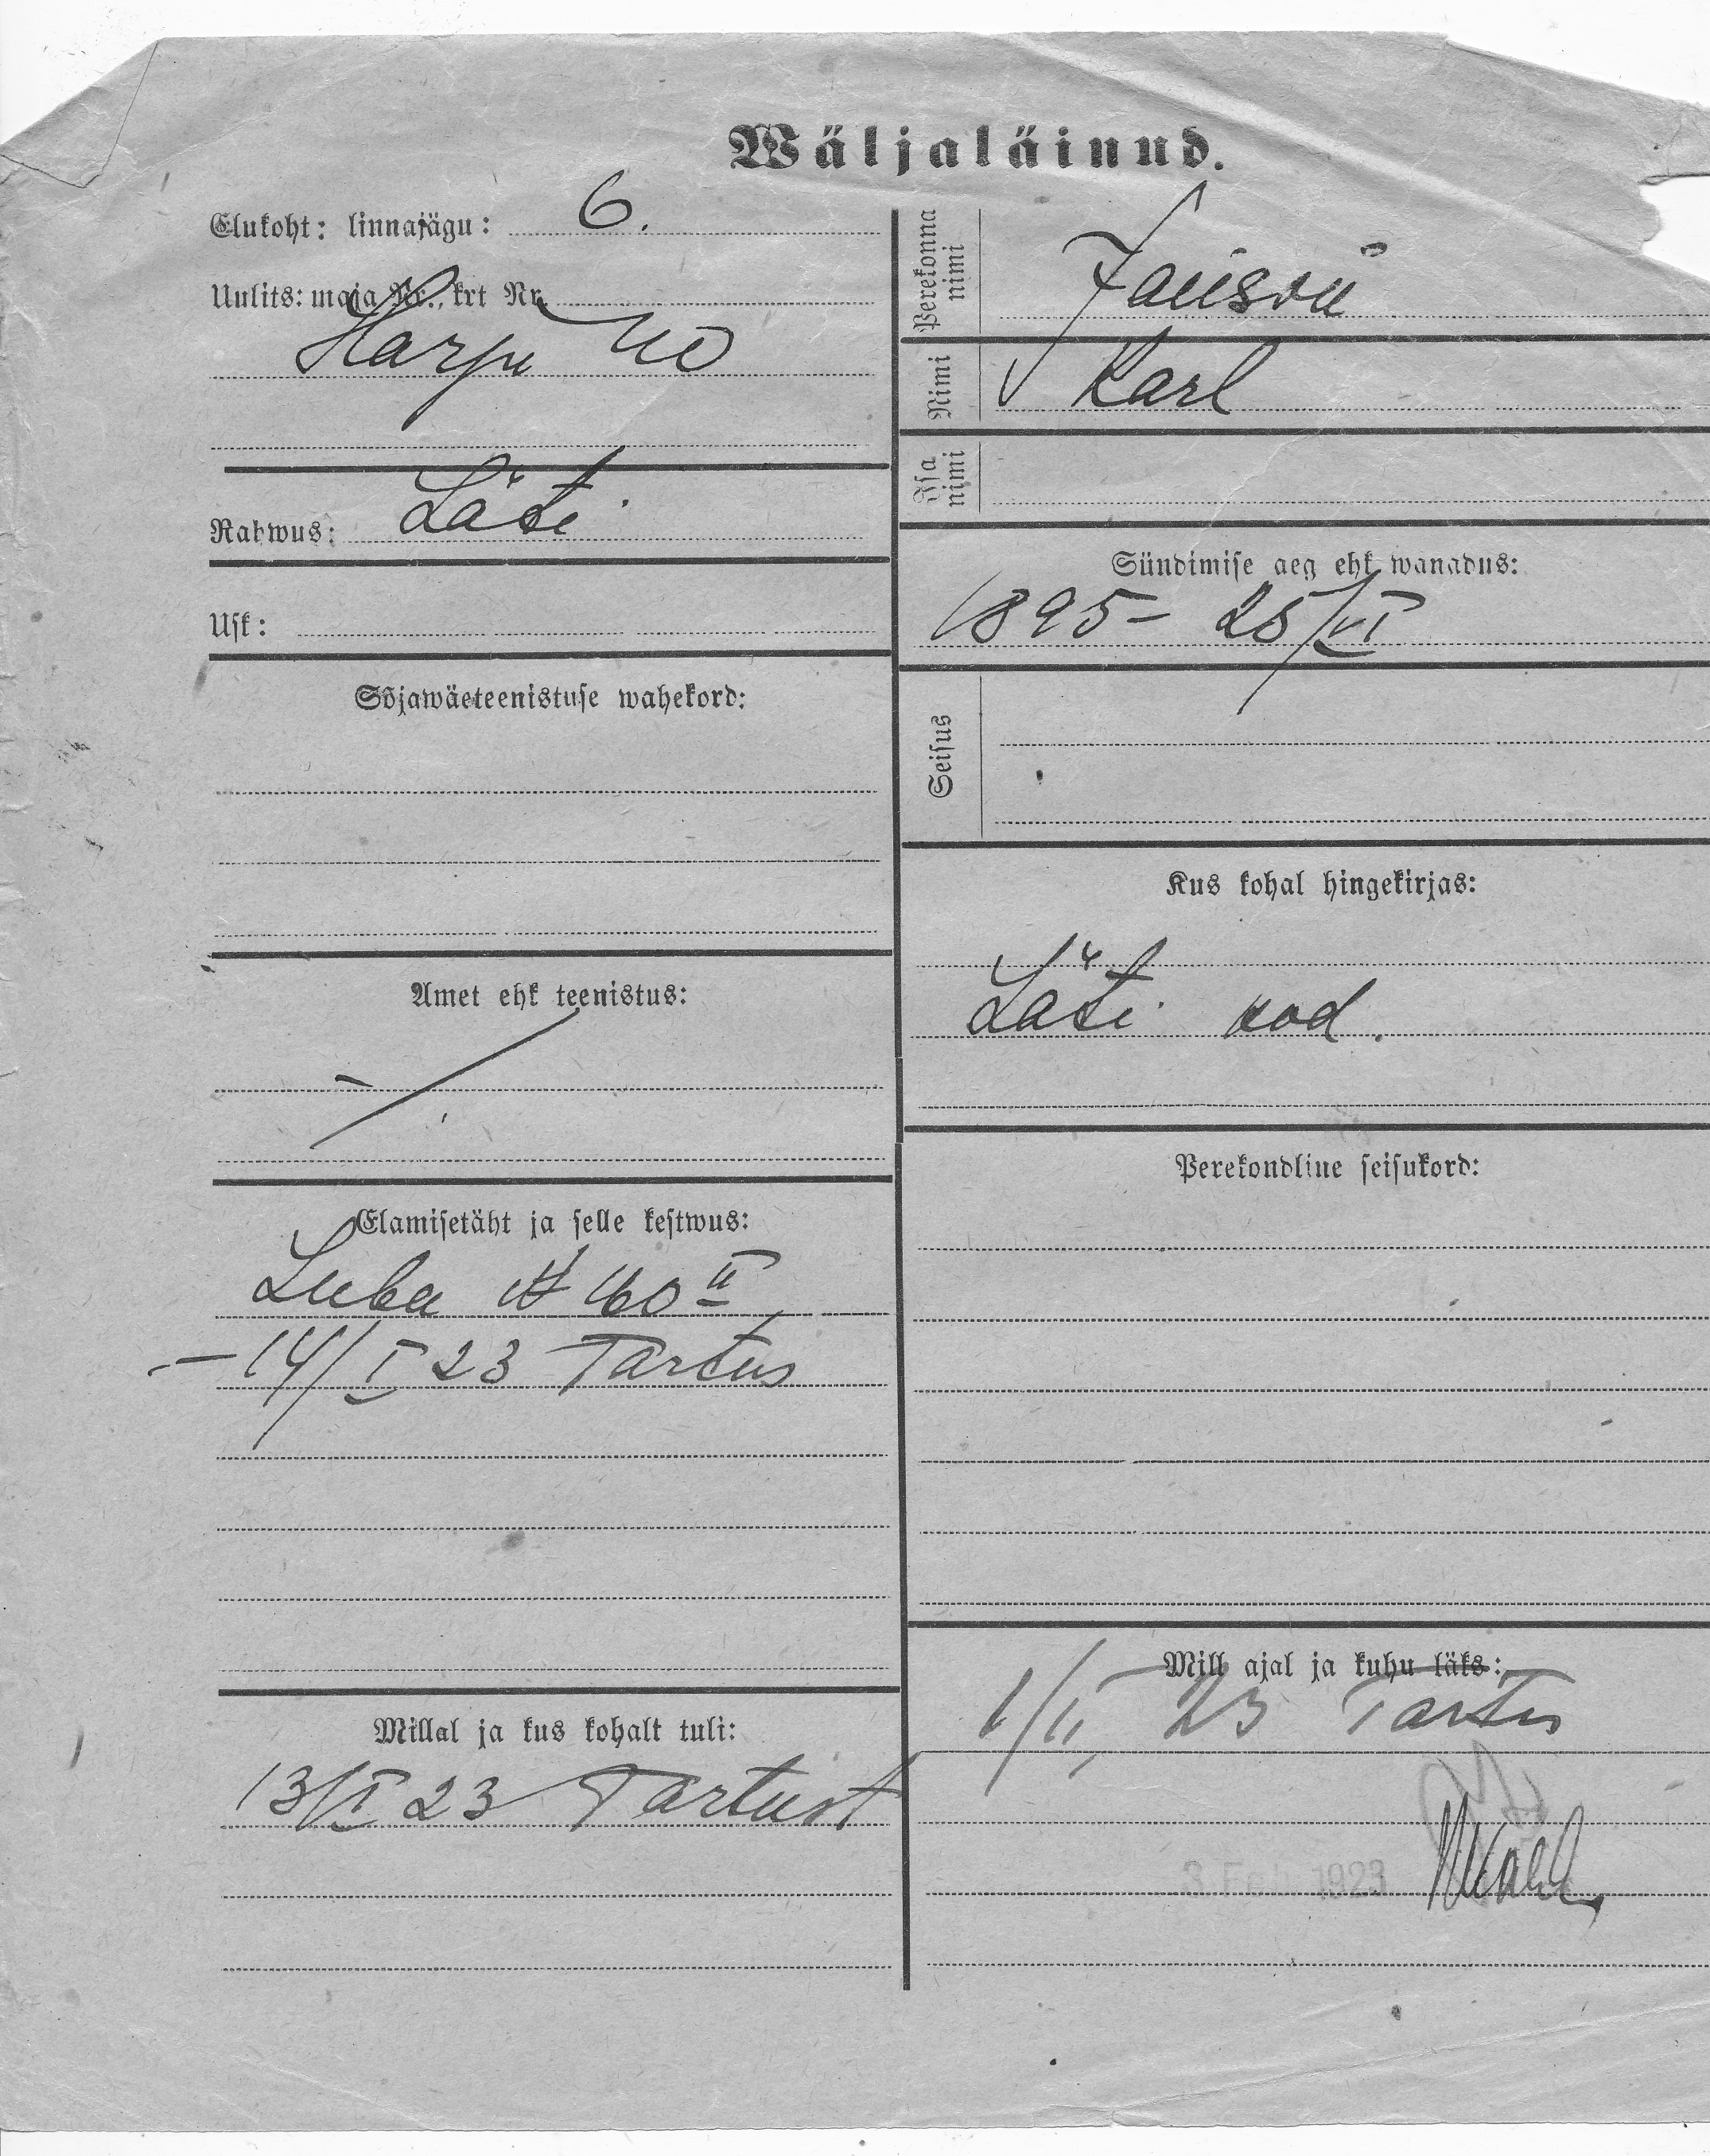 Wäljaläinud.
Elukoht: linnajägu: 6.
Uulits: maja Nr., krt Nr.
Harju 40
Rahwus: Läti
Usk:
Sõjawäeteenistuse wahekord:
Amet ehk teenistus:
Elamisetäht ja selle kestwus:
Luba № 160 II
14/I 23 Tartus
Millal ja kus kohalt tuli:
13/I 23 Tartust
Perekonna nimi
Janson
Nimi
Karl
Isa nimi
Sündimise aeg ehk wanadus:
1895 - 25/VI
Seisus
Kus kohal hingekirjas:
Läti kod.
Perekondline seisukord:
Mill ajal ja kuhu läks:
1/II 23 Tartu
3 Feb 1923